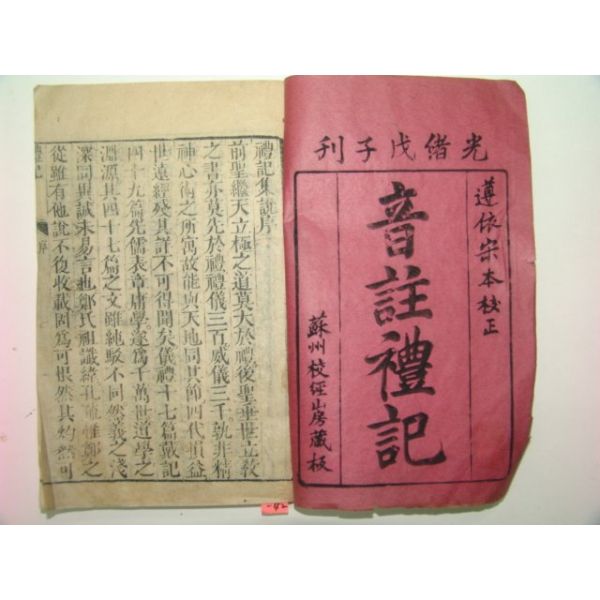 光緒戊子刊
遵依宋本校正
音註禮記
蘇州校經山房藏板
禮記集說序
前聖繼天立極之道莫大於禮後聖垂世立敎
之書亦莫先於禮禮儀三百威儀三千孰非精
神心術之所寓故能與天地同其節四代損益
世遠經殘其詳不可得聞矣儀禮十七篇戴記
四十九篇先儒表章庸學遂爲千萬世道學之
淵源其四十七篇之文雖純駁不同然義之淺
深同異誠未易言也鄭氏祖讖緯孔疏惟鄭之
從雖有他說不復收載固爲可恨然其灼然可
禮記
序
-42